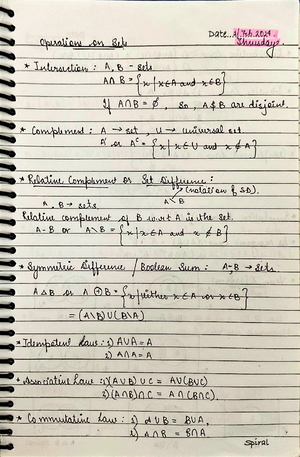 Date..1/Feb. 2024.
Thursday
Operations on Sets
* Intersection : A, B - sets
A∩B = {x | x∈A and x∈B}
If A∩B = ∅, So, A & B are disjoint.
* Complement : A → set, U → universal set
A' or Aᶜ = {x | x∈U and x∉A}
* Relative Complement or Set Difference :
(notation of SD).
A\B
A, B → sets.
Relative complement of B w.r.t A is the set.
A-B or A\B = {x | x∈A and x∉B}
* Symmetric Difference / Boolean Sum : A, B → sets.
A△B or A⊕B = {x | either x∈A or x∈B}
= (A\B)∪(B\A)
* Idempotent Law : 1) A∪A = A
2) A∩A = A
* Associative Law : 1) (A∪B)∪C = A∪(B∪C)
2) (A∩B)∩C = A∩(B∩C).
* Commutative Law : 1) A∪B = B∪A,
2) A∩B = B∩A.
Spiral